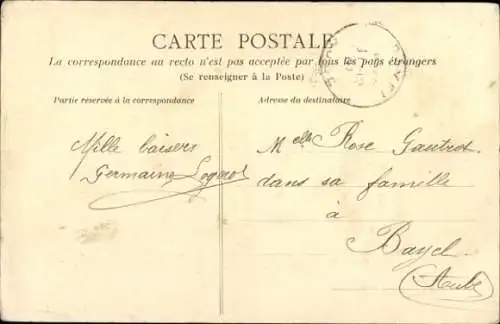 CARTE POSTALE
La correspondance au recto n'est pas acceptée par tous les pays étrangers
(Se renseigner à la Poste)
Partie réservée à la correspondance
Adresse du destinataire
Mille baisers
Germaine
Melle Rose Gautrot
dans sa famille
à
Bayel
(Aube)